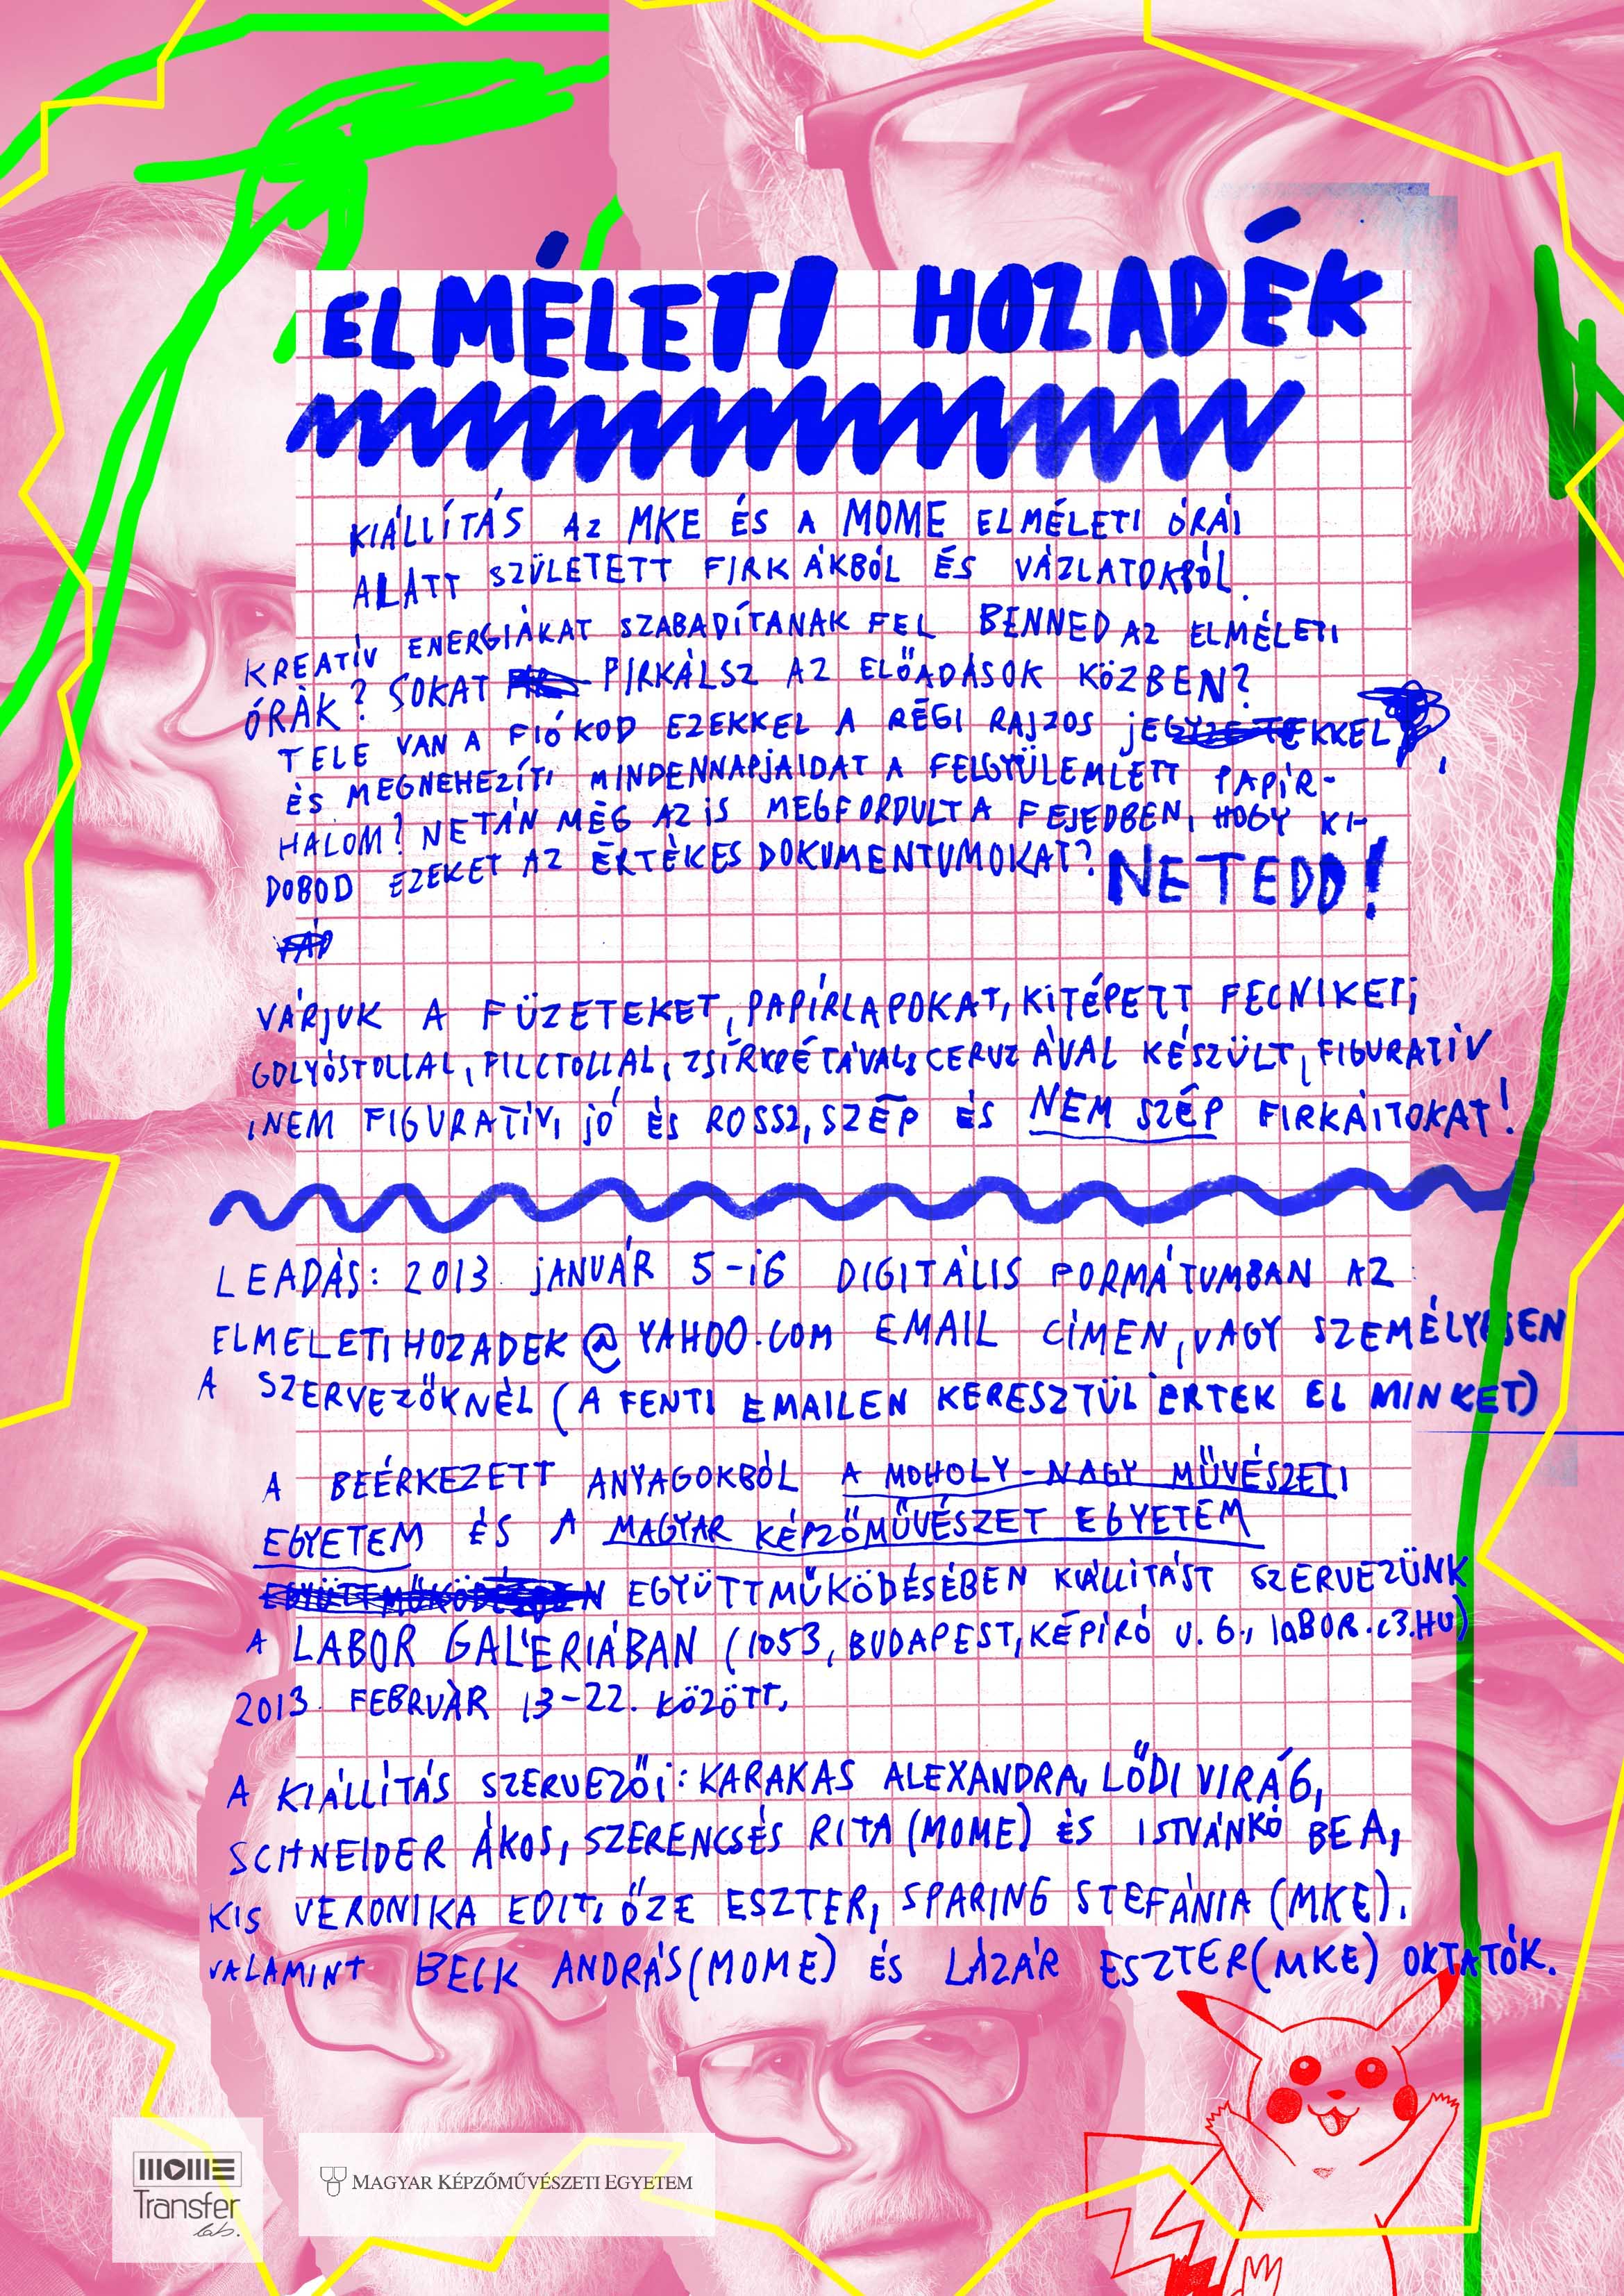 ELMÉLETI HOZADÉK
KIÁLLÍTÁS AZ MKE ÉS A MOME ELMÉLETI ÓRÁI
ALATT SZÜLETETT FIRKÁKBÓL ÉS VÁZLATOKBÓL.
KREATÍV ENERGIÁKAT SZABADÍTANAK FEL BENNED AZ ELMÉLETI
ÓRÁK? SOKAT FIRKÁLSZ AZ ELŐADÁSOK KÖZBEN?
TELE VAN A FIÓKOD EZEKKEL A RÉGI RAJZOS JEGYZETEKKEL,
ÉS MEGNEHEZÍTI MINDENNAPJAIDAT A FELGYÜLEMLETT PAPÍR-
HALOM? NETÁN MÉG AZ IS MEGFORDULT A FEJEDBEN, HOGY KI-
DOBOD EZEKET AZ ÉRTÉKES DOKUMENTUMOKAT? NE TEDD!
VÁRJUK A FÜZETEKET, PAPÍRLAPOKAT, KITÉPETT FECNIKET;
GOLYÓSTOLLAL, FILCTOLLAL, ZSÍRKRÉTÁVAL, CERUZÁVAL KÉSZÜLT, FIGURATÍV
, NEM FIGURATÍV, JÓ ÉS ROSSZ, SZÉP ÉS NEM SZÉP FIRKÁITOKAT!
LEADÁS: 2013. JANUÁR 5-IG DIGITÁLIS FORMÁTUMBAN AZ
ELMELETIHOZADEK@YAHOO.COM EMAIL CÍMEN, VAGY SZEMÉLYESEN
A SZERVEZŐKNÉL (A FENTI EMAILEN KERESZTÜL ÉRTEK EL MINKET)
A BEÉRKEZETT ANYAGOKBÓL A MOHOLY-NAGY MŰVÉSZETI
EGYETEM ÉS A MAGYAR KÉPZŐMŰVÉSZET EGYETEM
EGYÜTTMŰKÖDÉSÉBEN KIÁLLÍTÁST SZERVEZÜNK
A LABOR GALÉRIÁBAN (1053, BUDAPEST, KÉPÍRÓ U. 6., laBOR.c3.HU)
2013. FEBRUÁR 13-22. KÖZÖTT.
A KIÁLLÍTÁS SZERVEZŐI: KARAKAS ALEXANDRA, LŐDI VIRÁG,
SCHNEIDER ÁKOS, SZERENCSÉS RITA (MOME) ÉS ISTVÁNKÓ BEA,
KIS VERONIKA EDIT, ŐZE ESZTER, SPARING STEFÁNIA (MKE).
VALAMINT BECK ANDRÁS (MOME) ÉS LÁZÁR ESZTER (MKE) OKTATÓK.
MOME
Transfer
lab.
MAGYAR KÉPZŐMŰVÉSZETI EGYETEM